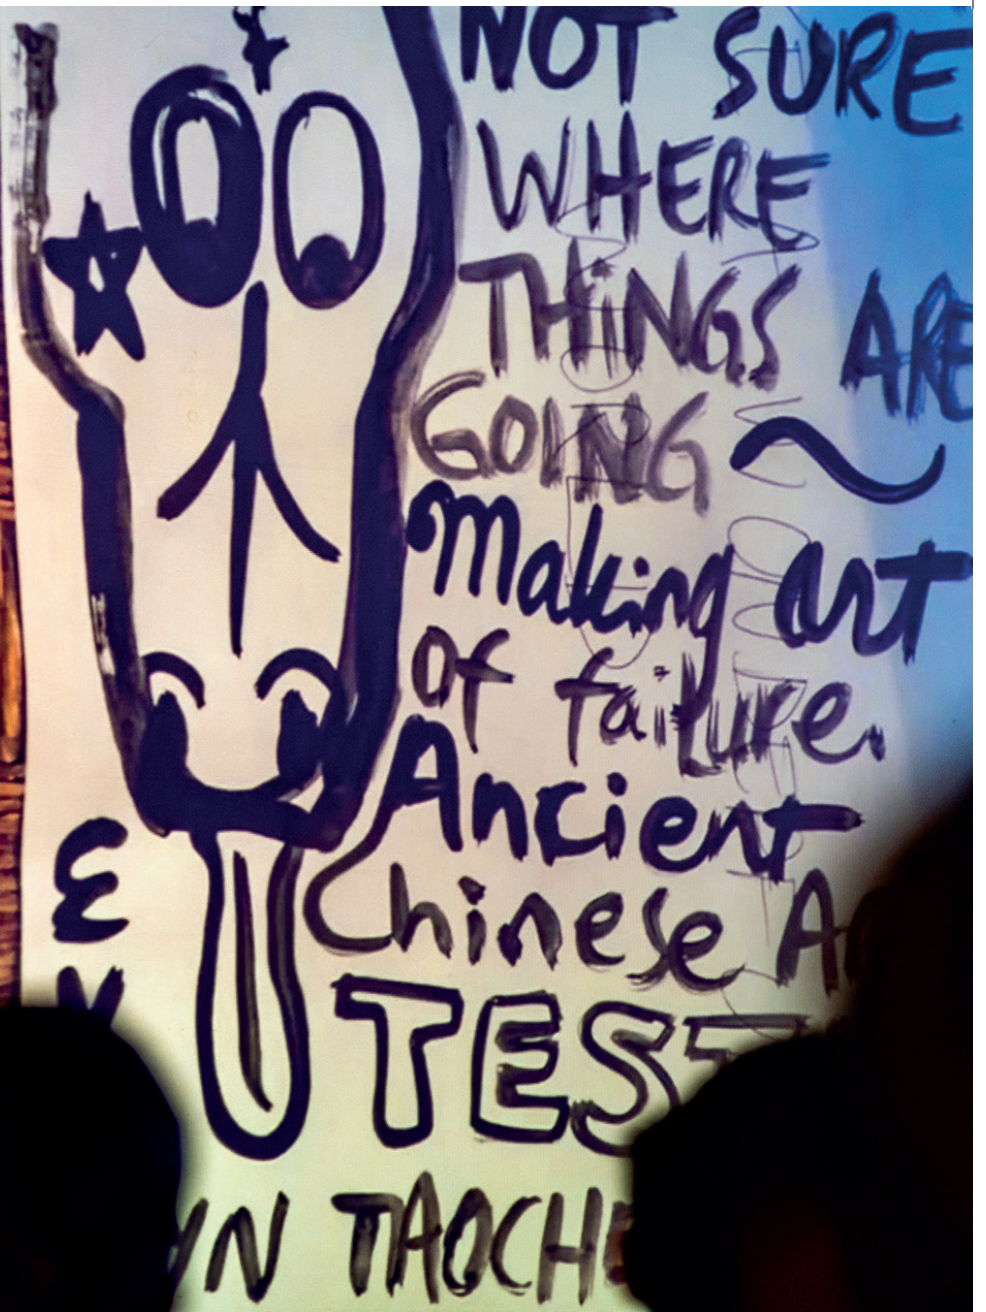 NOT SURE
WHERE
THINGS ARE
GOING ~
Making art
of failure.
Ancient
Chinese
TEST
IN